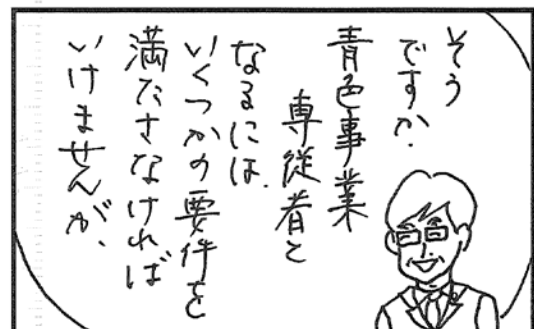 そう
ですか.
青色事業
専従者と
なるには.
いくつかの要件を
満たさなければ
いけませんが、